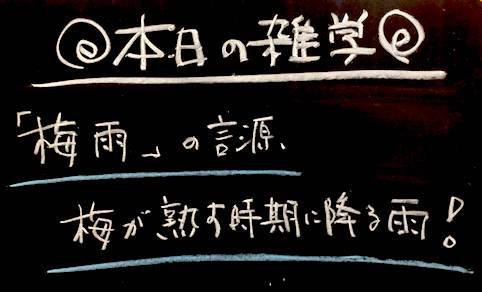 本日の雑学
「梅雨」の言源、
梅が熟す時期に降る雨!